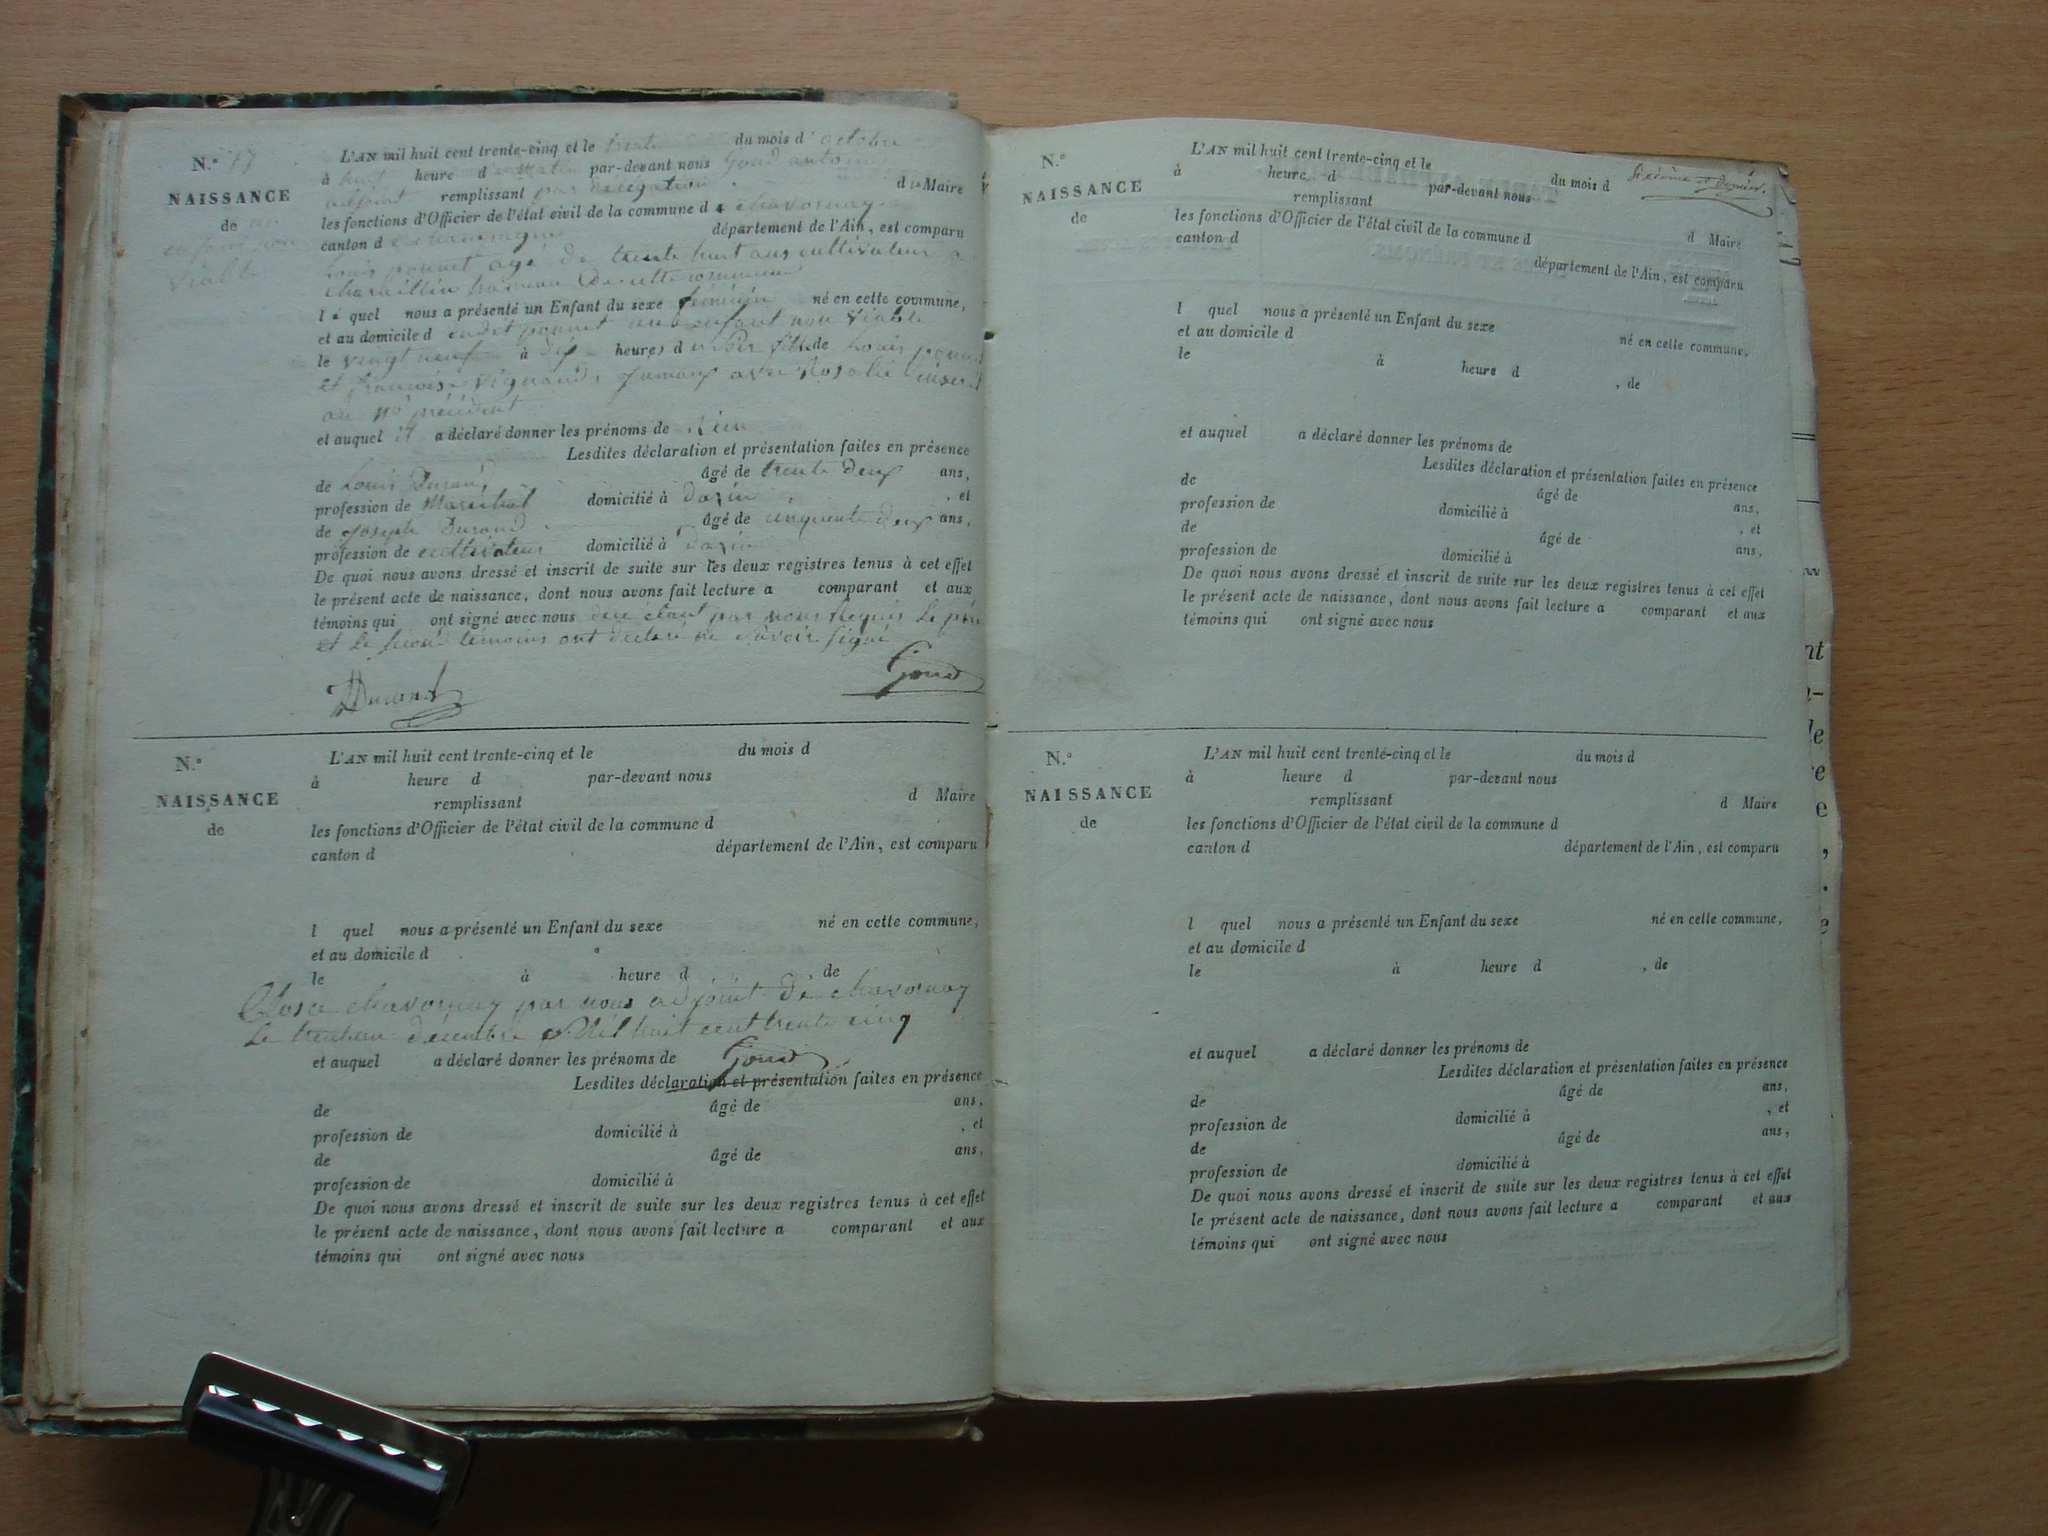 N.° 17
NAISSANCE
de un
enfant non
viable
L'AN mil huit cent trente-cinq et le trente du mois d' octobre
à huit heure d u matin par-devant nous Goud antoine
adjoint remplissant par délégation d u Maire
les fonctions d'Officier de l'état civil de la commune d e chavornay
canton d e champagne département de l'Ain, est comparu
Louis ponnet agé de trente huit ans cultivateur a
hameau de cette commune
l e quel nous a présenté un Enfant du sexe féminin né en cette commune,
et au domicile d udit ponnet un enfant non viable
le vingt neuf à dix heures d u soir fille de Louis ponnet
et françoise jumaux avec Rosalie inscrit
au n° précédent
et auquel il a déclaré donner les prénoms de rien
Lesdites déclaration et présentation faites en présence
de Louis Durand âgé de trente deux ans,
profession de Maréchal domicilié à dazin , et
de Joseph Durand âgé de cinquante deux ans,
profession de cultivateur domicilié à dazin
De quoi nous avons dressé et inscrit de suite sur les deux registres tenus à cet effet
le présent acte de naissance, dont nous avons fait lecture a comparant et aux
témoins qui ont signé avec nous de ce étant par nous Requis Le père
et Le second témoins ont déclaré ne savoir signé
Durand
Goud
N.°
NAISSANCE
de
L'AN mil huit cent trente-cinq et le du mois d
à heure d par-devant nous
remplissant d Maire
les fonctions d'Officier de l'état civil de la commune d
canton d département de l'Ain, est comparu
l quel nous a présenté un Enfant du sexe né en cette commune,
et au domicile d
le à heure d de
Clos a chavornay par nous adjoint de chavornay
Le trente un décembre Mil huit cent trente cinq
et auquel a déclaré donner les prénoms de
Goud
Lesdites déclaration et présentation faites en présence
de âgé de ans,
profession de domicilié à , et
de âgé de ans,
profession de domicilié à
De quoi nous avons dressé et inscrit de suite sur les deux registres tenus à cet effet
le présent acte de naissance, dont nous avons fait lecture a comparant et aux
témoins qui ont signé avec nous
Sixième et dernier.
N.°
NAISSANCE
de
L'AN mil huit cent trente-cinq et le du mois d
à heure d par-devant nous
remplissant d Maire
les fonctions d'Officier de l'état civil de la commune d
canton d département de l'Ain, est comparu
l quel nous a présenté un Enfant du sexe né en cette commune,
et au domicile d
le à heure d , de
et auquel a déclaré donner les prénoms de
Lesdites déclaration et présentation faites en présence
de âgé de ans,
profession de domicilié à , et
de âgé de ans,
profession de domicilié à
De quoi nous avons dressé et inscrit de suite sur les deux registres tenus à cet effet
le présent acte de naissance, dont nous avons fait lecture a comparant et aux
témoins qui ont signé avec nous
N.°
NAISSANCE
de
L'AN mil huit cent trente-cinq et le du mois d
à heure d par-devant nous
remplissant d Maire
les fonctions d'Officier de l'état civil de la commune d
canton d département de l'Ain, est comparu
l quel nous a présenté un Enfant du sexe né en cette commune,
et au domicile d
le à heure d , de
et auquel a déclaré donner les prénoms de
Lesdites déclaration et présentation faites en présence
de âgé de ans,
profession de domicilié à , et
de âgé de ans,
profession de domicilié à
De quoi nous avons dressé et inscrit de suite sur les deux registres tenus à cet effet
le présent acte de naissance, dont nous avons fait lecture a comparant et aux
témoins qui ont signé avec nous